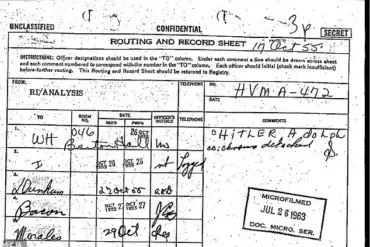 UNCLASSIFIED
CONFIDENTIAL
SECRET
ROUTING AND RECORD SHEET 17 Oct 55
INSTRUCTIONS: Officer designations should be used in the "TO" column. Under each comment a line should be drawn across sheet
and each comment numbered to correspond with the number in the "TO" column. Each officer should initial (check mark insufficient)
before further routing. This Routing and Record Sheet should be returned to Registry.
FROM:
RI/ANALYSIS
TELEPHONE
NO.
HVMA-472
DATE
TO
ROOM
NO.
DATE
REC'D
FWD'D
OFFICER'S
INITIALS
TELEPHONE
COMMENTS
1.
WH
046
Barton Hall
26 OCT
HITLER Adolph
detached
2.
3.
Dunham
27 Oct 55
4.
Bacon
OCT 27
1955
OCT 27
1955
5.
Morales
29 Oct
MICROFILMED
JUL 26 1963
DOC. MICRO. SER.